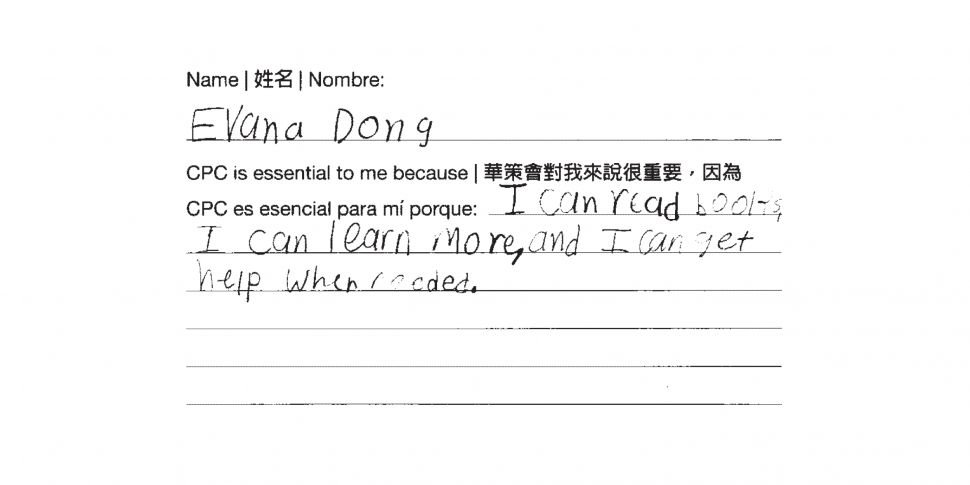 Name | 姓名 | Nombre:
Evana Dong
CPC is essential to me because | 華策會對我來說很重要，因為
CPC es esencial para mí porque: I can read books,
I can learn more, and I can get
help when needed.